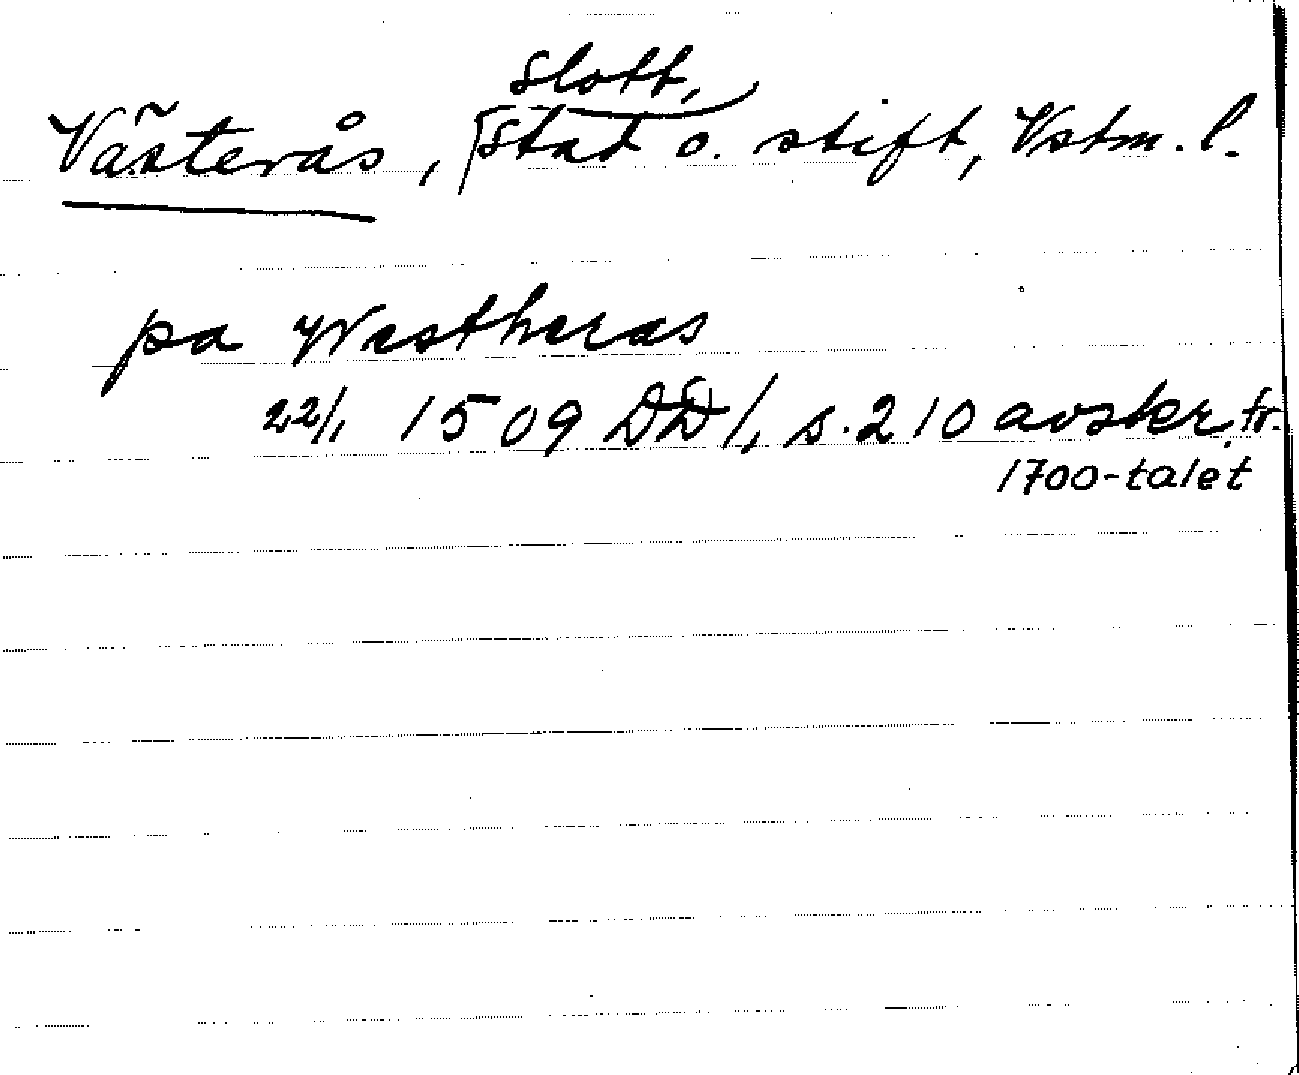 Slott,
Västerås, Stad o. stift, Vstm. l.
pa Westheras
22/1 1509 DD1, s. 210 avskr. fr.
1700-talet